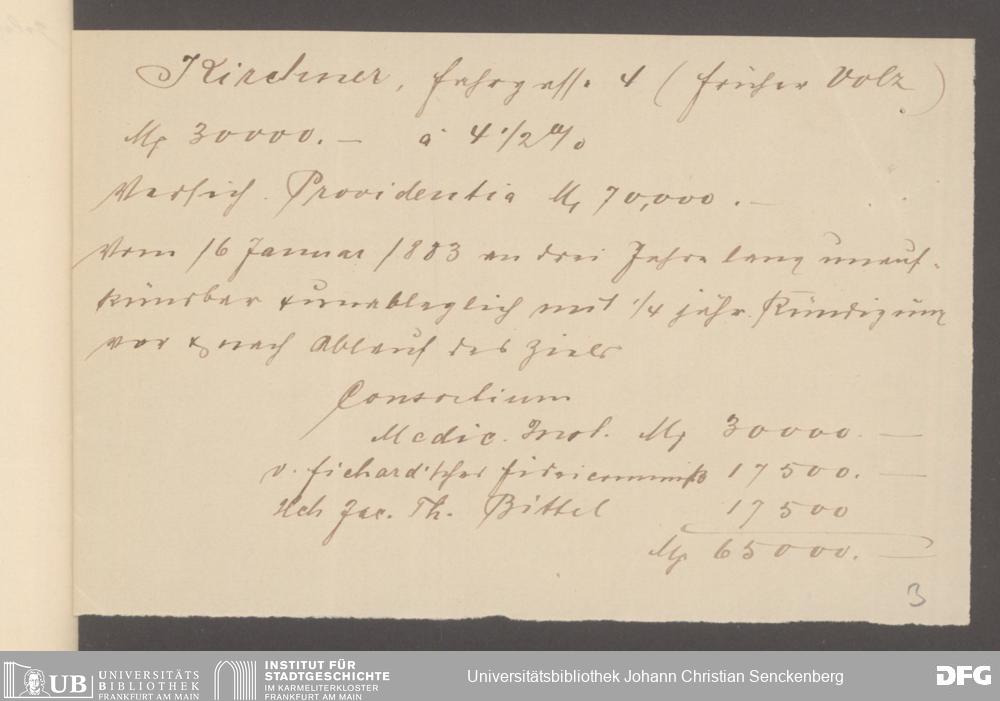 Kirchner, Fahrgasse 4 (früher Volz)
M 30000.— à 4 1/2 %
Versich. Providentia M 70,000.—
Vom 16 Januar 1883 an drei Jahre lang unauf-
kündbar & unableglich mit 1/4 jähr. Kündigung
vor & nach Ablauf des Ziels
Consortium
Medic. Inst. M 30000.—
v. Fichard'sches Fideicommiß 17500.—
Jac. Th. Bittel 17500
M 65000.—
3
UB UNIVERSITÄTS
BIBLIOTHEK
FRANKFURT AM MAIN
INSTITUT FÜR
STADTGESCHICHTE
IM KARMELITERKLOSTER
FRANKFURT AM MAIN
Universitätsbibliothek Johann Christian Senckenberg
DFG